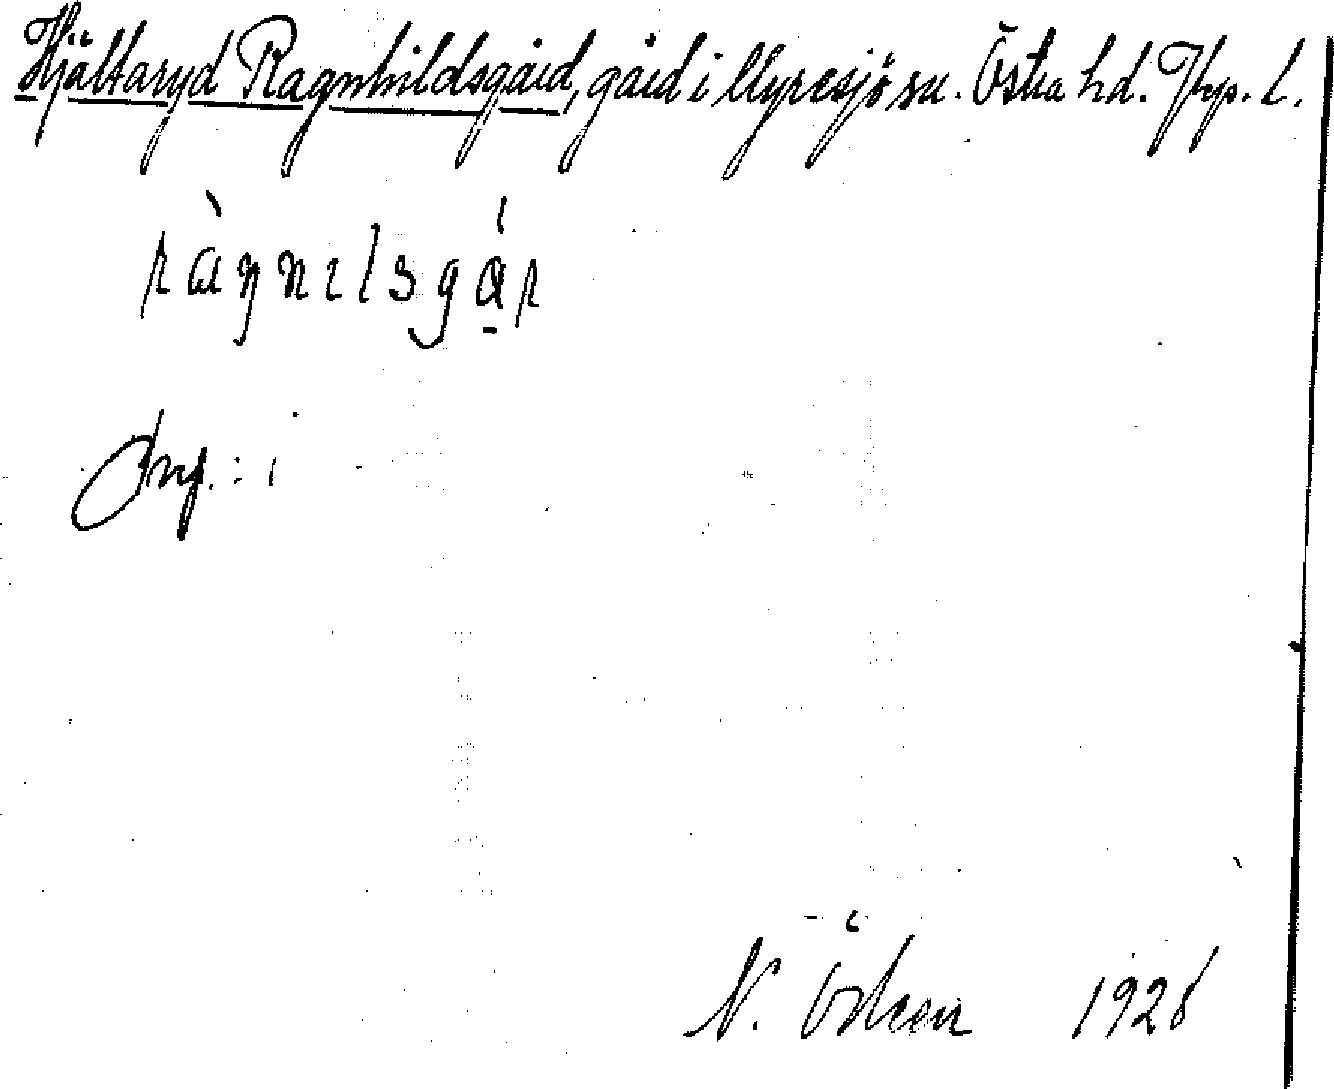 Hjältaryd Ragnhildsgård, gård i Myresjö sn. Östra hd. Jkp. l.
ràŋnɪlsgá̱r
Prep.: i
N. Ödeen 1926